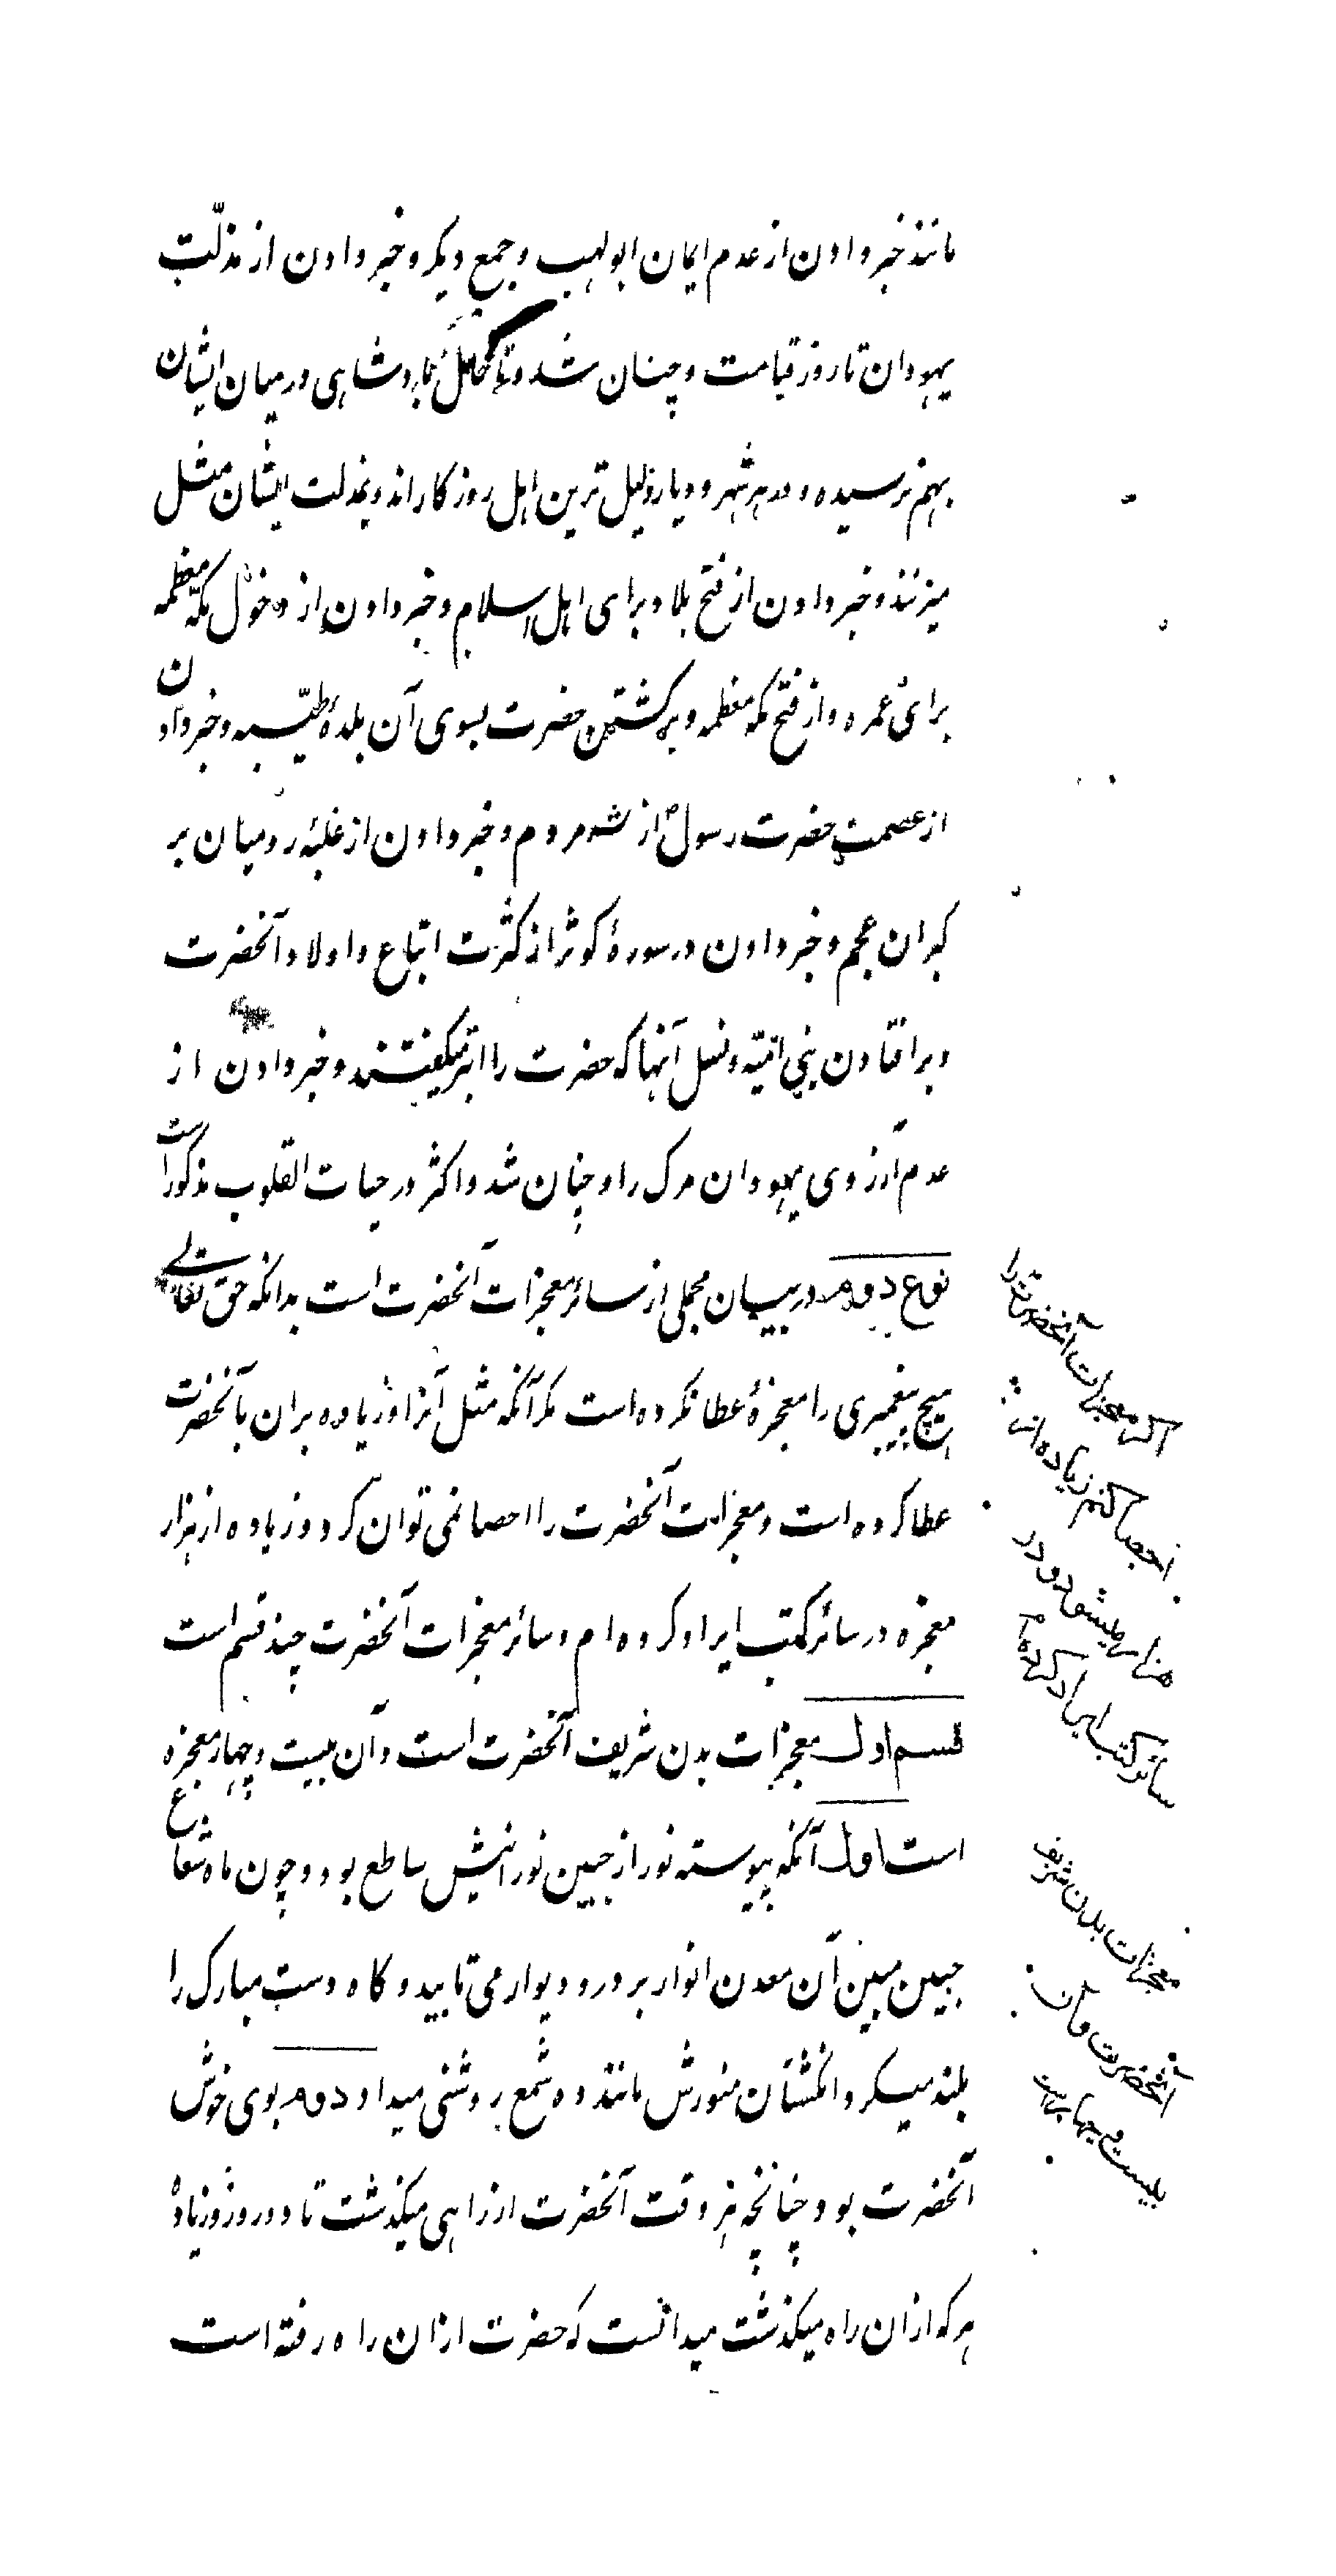 مانند خبر دادن از عدم ایمان ابولهب و جمع دیگر و خبر دادن از مذلّت
یهودان تا روز قیامت و چنان شد و تا حال بادشاهی در میان ایشان
بهم نرسیده و در هر شهر و دیار ذلیل ترین اهل روزکار اند و بمذلت ایشان مثل
میزنند و خبر دادن از فتح بلاد برای اهل اسلام و خبر دادن از دخول مکّه معظمه
برای عمره و از فتح مکه معظمه و برکشتن حضرت بسوی آن بلدۀ طیّبه و خبر دادن
از عصمت حضرت رسول از شر مردم و خبر دادن از غلبۀ رومیان بر
کبران عجم و خبر دادن در سورۀ کوثر از کثرت اتباع و اولاد آنحضرت
و بر افتادن بنی امیّه و نسل آنها که حضرت را ابتر میکفتند و خبر دادن از
عدم آرزوی یهودان مرک را و چنان شد و اکثر در حیات القلوب مذکور است
نوع دوم در بیان مجملی از سائر معجزات آنحضرت است بدانکه حق تعالی
هیچ پیغمبری را معجزۀ عطا نکرده است مکر آنکه مثل آنرا و زیاده بران بآنحضرت
عطا کرده است و معجزات آنحضرت را احصا نمی توان کرد و زیاده از هزار
معجزه در سائر کتب ایراد کرده ام و سائر معجزات آنحضرت چند قسم است
قسم اول معجزات بدن شریف آنحضرت است و آن بیست و چهار معجزه
است اول آنکه پیوسته نور از جبین نورانیش ساطع بود و چون ماه شعاع
جبین مبین آن معدن انوار بر در و دیوار می تابید و کاه دست مبارک را
بلند میکرد و انکشتان منورش مانند ده شمع روشنی میداد دوم بوی خوش
آنحضرت بود چنانچه هر وقت آنحضرت از راهی میکذشت تا دو روز و زیاده
هر که ازان راه میکذشت میدانست که حضرت ازان راه رفته است
اکر معجزات آنحضرت را
احصا کنم زیاده از
هزار میشود و در
سائر کتب ایراد کرده ام
معجزات بدن شریف
آنحضرت و آن
بیست و چهار است